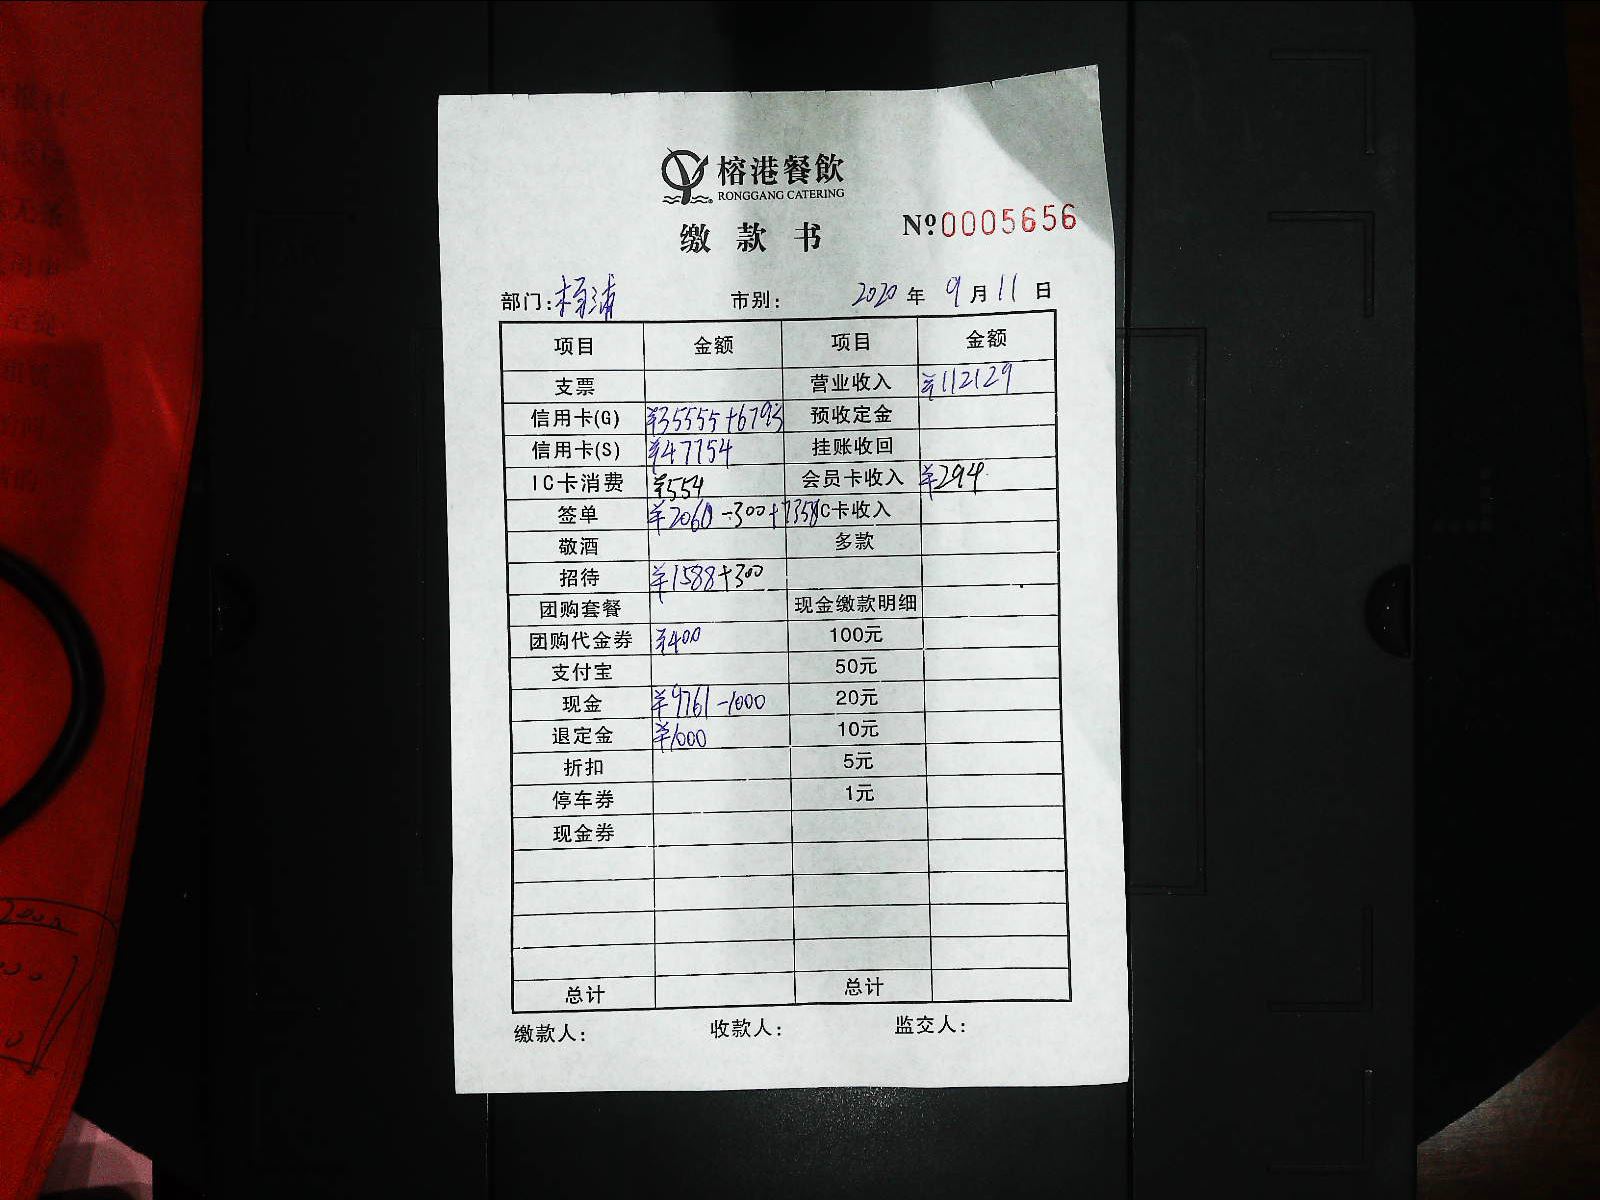 榕港餐飲
RONGGANG CATERING
缴款书 Nº0005656
部门: 市别: 2020年9月11日
项目 金额 项目 金额
支票 营业收入 ¥112129
信用卡(G) ¥35555+6793 预收定金
信用卡(S) ¥47754 挂账收回
IC卡消费 ¥554 会员卡收入 ¥294
签单 ¥2060-300+7358 IC卡收入
敬酒 多款
招待 ¥1588+300
团购套餐 现金缴款明细
团购代金券 ¥400 100元
支付宝 50元
现金 ¥9761-1000 20元
退定金 ¥1000 10元
折扣 5元
停车券 1元
现金券
总计 总计
缴款人: 收款人: 监交人: